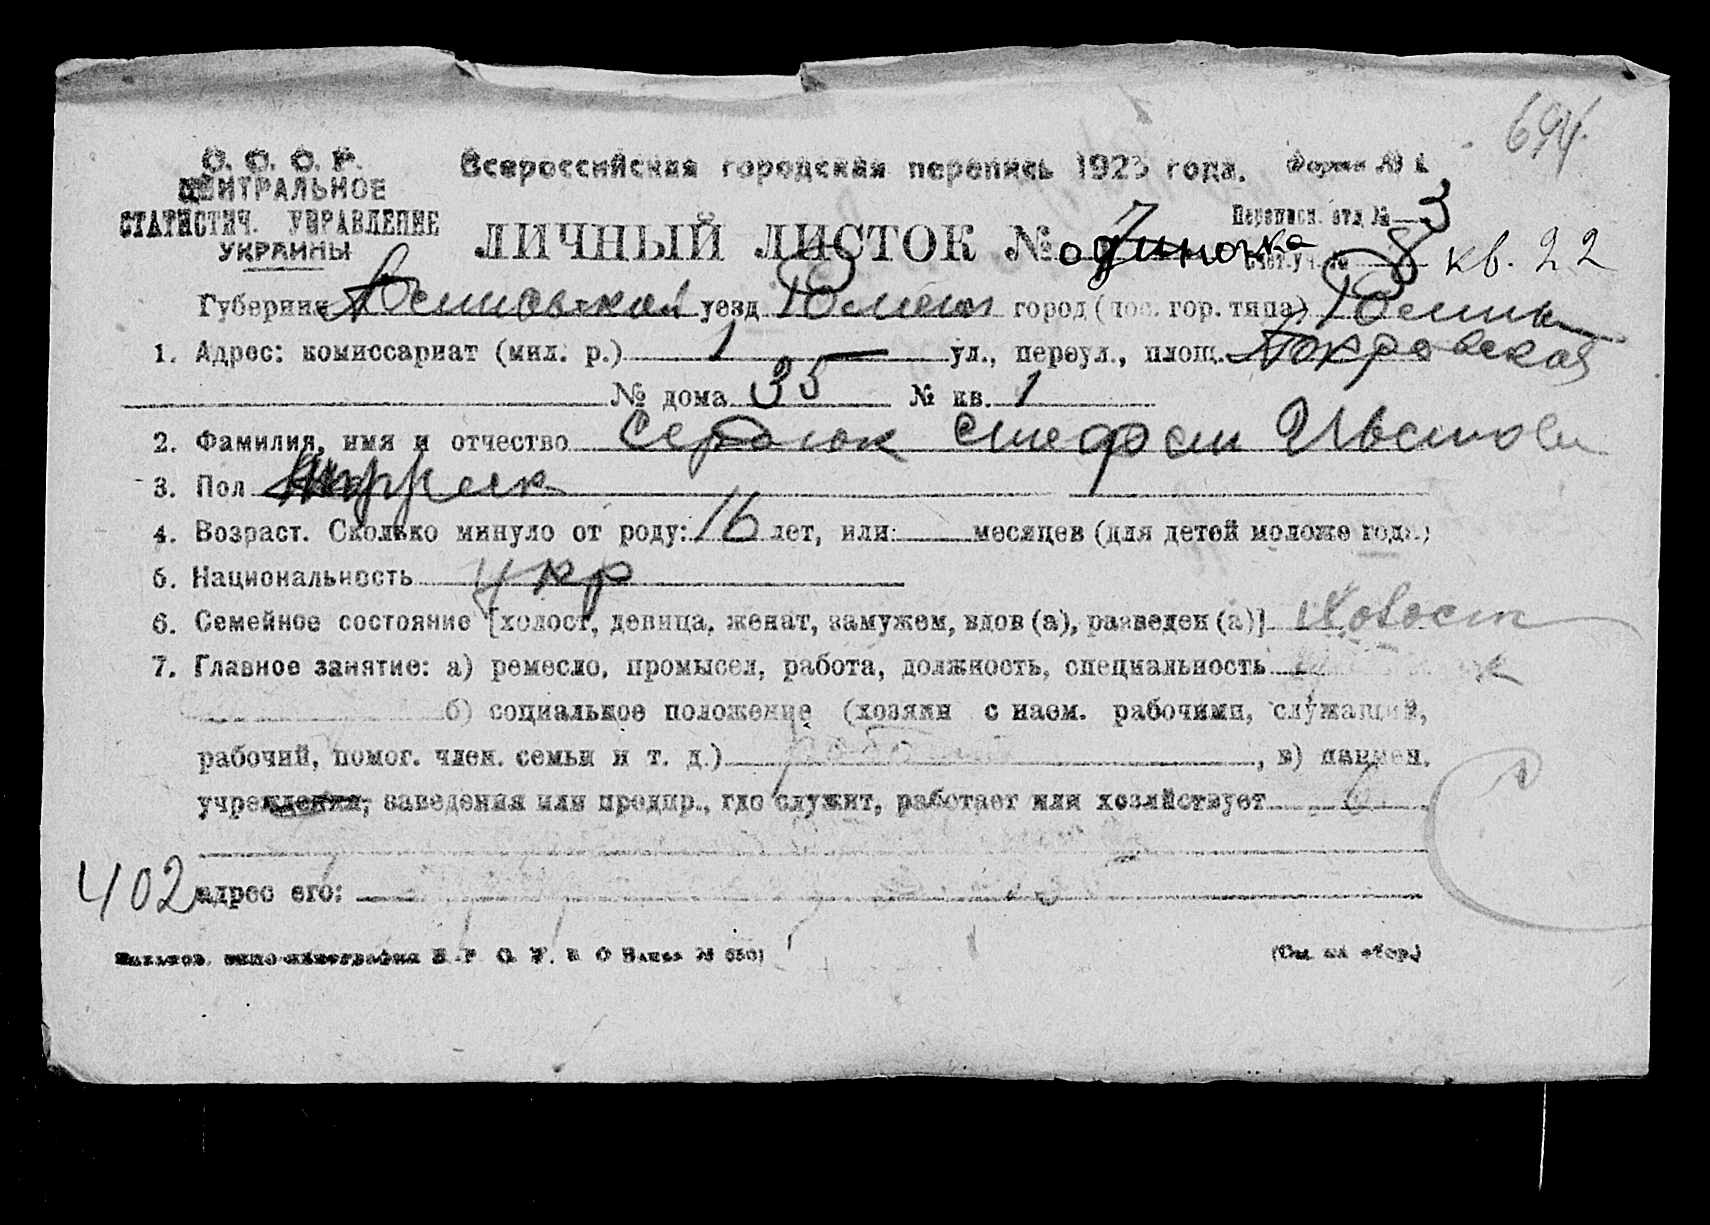 694
С. С. С. Р.
ЦЕНТРАЛЬНОЕ
СТАТИСТИЧ. УПРАВЛЕНИЕ
УКРАИНЫ
Всероссийская городская перепись 1923 года. Форма № 1
Переписн. отд. № 3
ЛИЧНЫЙ ЛИСТОК № 7 одиночка
8 кв. 22
Губерния уезд Ромен город (пос. гор. типа) Ромны
1. Адрес: комиссариат (мил. р.) 1 ул., переул., площ. Покровская
№ дома 35 № кв. 1
2. Фамилия, имя и отчество Сердюк Стефан Иванов
3. Пол мужск
4. Возраст. Сколько минуло от роду: 16 лет, или месяцев (для детей моложе года)
5. Национальность укр
6. Семейное состояние [холост, девица, женат, замужем, вдов (а), разведен (а)] Холост
7. Главное занятие: а) ремесло, промысел, работа, должность, специальность
б) социальное положение (хозяин с наем. рабочими, служащий,
рабочий, помог. член. семьи и т. д.) , в) наимен.
учреждения, заведения или предпр., где служит, работает или хозяйствует
402 адрес его:
(См. на обор.)